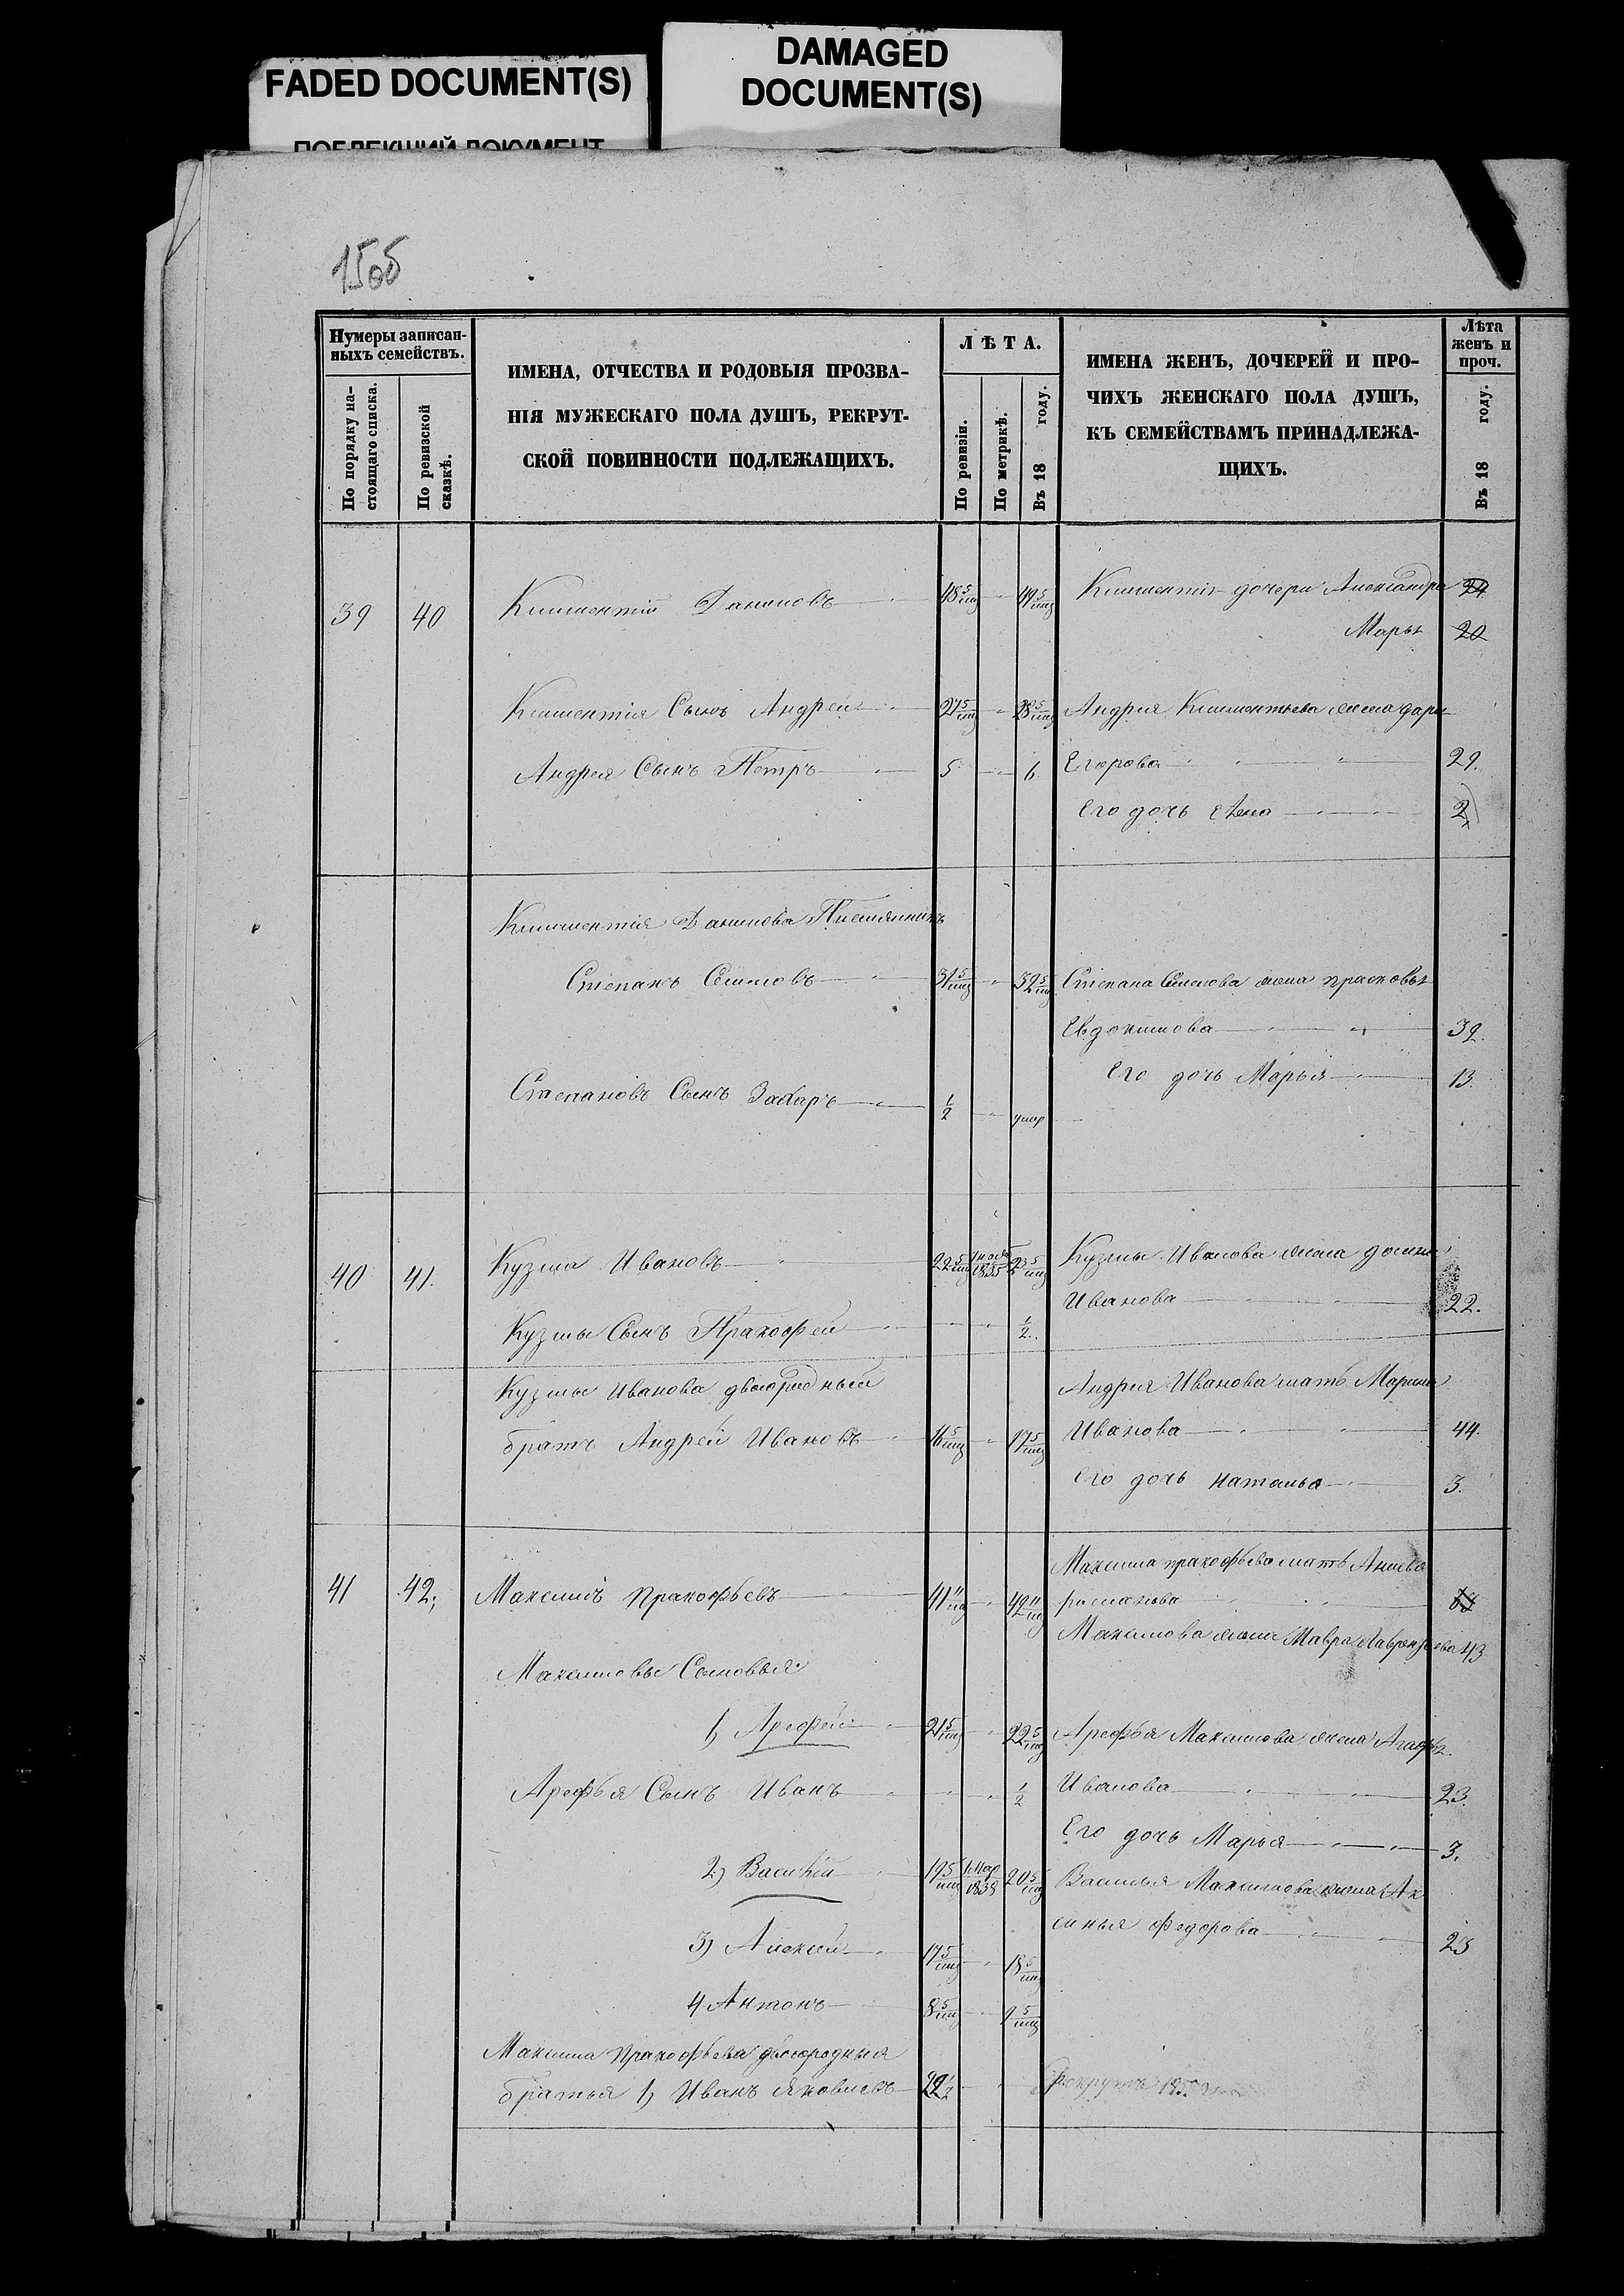 FADED DOCUMENT(S)
DAMAGED
DOCUMENT(S)
ПОБЛЕКШИЙ ДОКУМЕНТ
15об
Нумеры записан-
ныхъ семействъ.
По порядку на-
стоящаго списка.
По ревизской
сказкѣ.
ИМЕНА, ОТЧЕСТВА И РОДОВЫЯ ПРОЗВА-
НІЯ МУЖЕСКАГО ПОЛА ДУШЪ, РЕКРУТ-
СКОЙ ПОВИННОСТИ ПОДЛЕЖАЩИХЪ.
ЛѢТА.
По ревизіи.
По метрикѣ.
Въ 18 году.
ИМЕНА ЖЕНЪ, ДОЧЕРЕЙ И ПРО-
ЧИХЪ ЖЕНСКАГО ПОЛА ДУШЪ,
КЪ СЕМЕЙСТВАМЪ ПРИНАДЛЕЖА-
ЩИХЪ.
Лѣта
женъ и
проч.
Въ 18 году.
39 40 Климентій Даниловъ 48 5/мц 49 5/мц Климентія дочери Александра 24
Марья 20
Климентія Сынъ Андрей 27 5/мц 28 5/мц Андрея Климентьева жена дарья
Андрея Сынъ Петръ 5 6 Егорова 29.
Его дочь Анна 2
Климентія Данилова Племянникъ
Степанъ Семеновъ 31 5/мц 32 5/мц Степана Семенова жена прасковья
Евдокимова 32.
Его дочь Марья 13.
Степановъ Сынъ Захаръ 1/2 умер
40 41. Кузма Ивановъ 22 5/мц 1835 23 5/мц Кузмы Иванова жена домна
Иванова 22.
Кузмы Сынъ Пракофей 1/2
Кузмы Иванова двоюродный
Андрея Иванова мать Марина
братъ Андрей Ивановъ 16 5/мц 17 5/мц Иванова 44.
Его дочь наталья 3.
Максима пракофьева мать
41 42. Максимъ пракофьевъ 41 11/мц 42 11/мц романова
Максимова жена Мавра Лаврентьева 43
Максимовы Сыновья
1, Арефей 21 5/мц 22 5/мц Арефья Максимова жена Агафья
Арефья Сынъ Иванъ 1/2 Иванова 23.
Его дочь Марья 3.
2.) Василій 19 5/мц 1 Мар 1838 20 5/мц Василья Максимова жена Ак
синья Федорова 23
3) Алексей 17 5/мц 18 5/мц
4 Антонъ 8 5/мц 9 5/мц
Максима пракофьева двоюродныя
братья 1, Иванъ Яковлевъ 22 1/2 рекрутъ